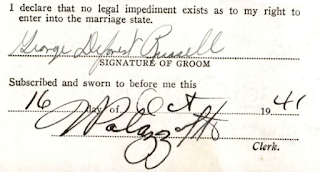 I declare that no legal impediment exists as to my right to
enter into the marriage state.
George Deforest Russell
SIGNATURE OF GROOM
Subscribed and sworn to before me this
16 day of Oct 1941
Clerk.